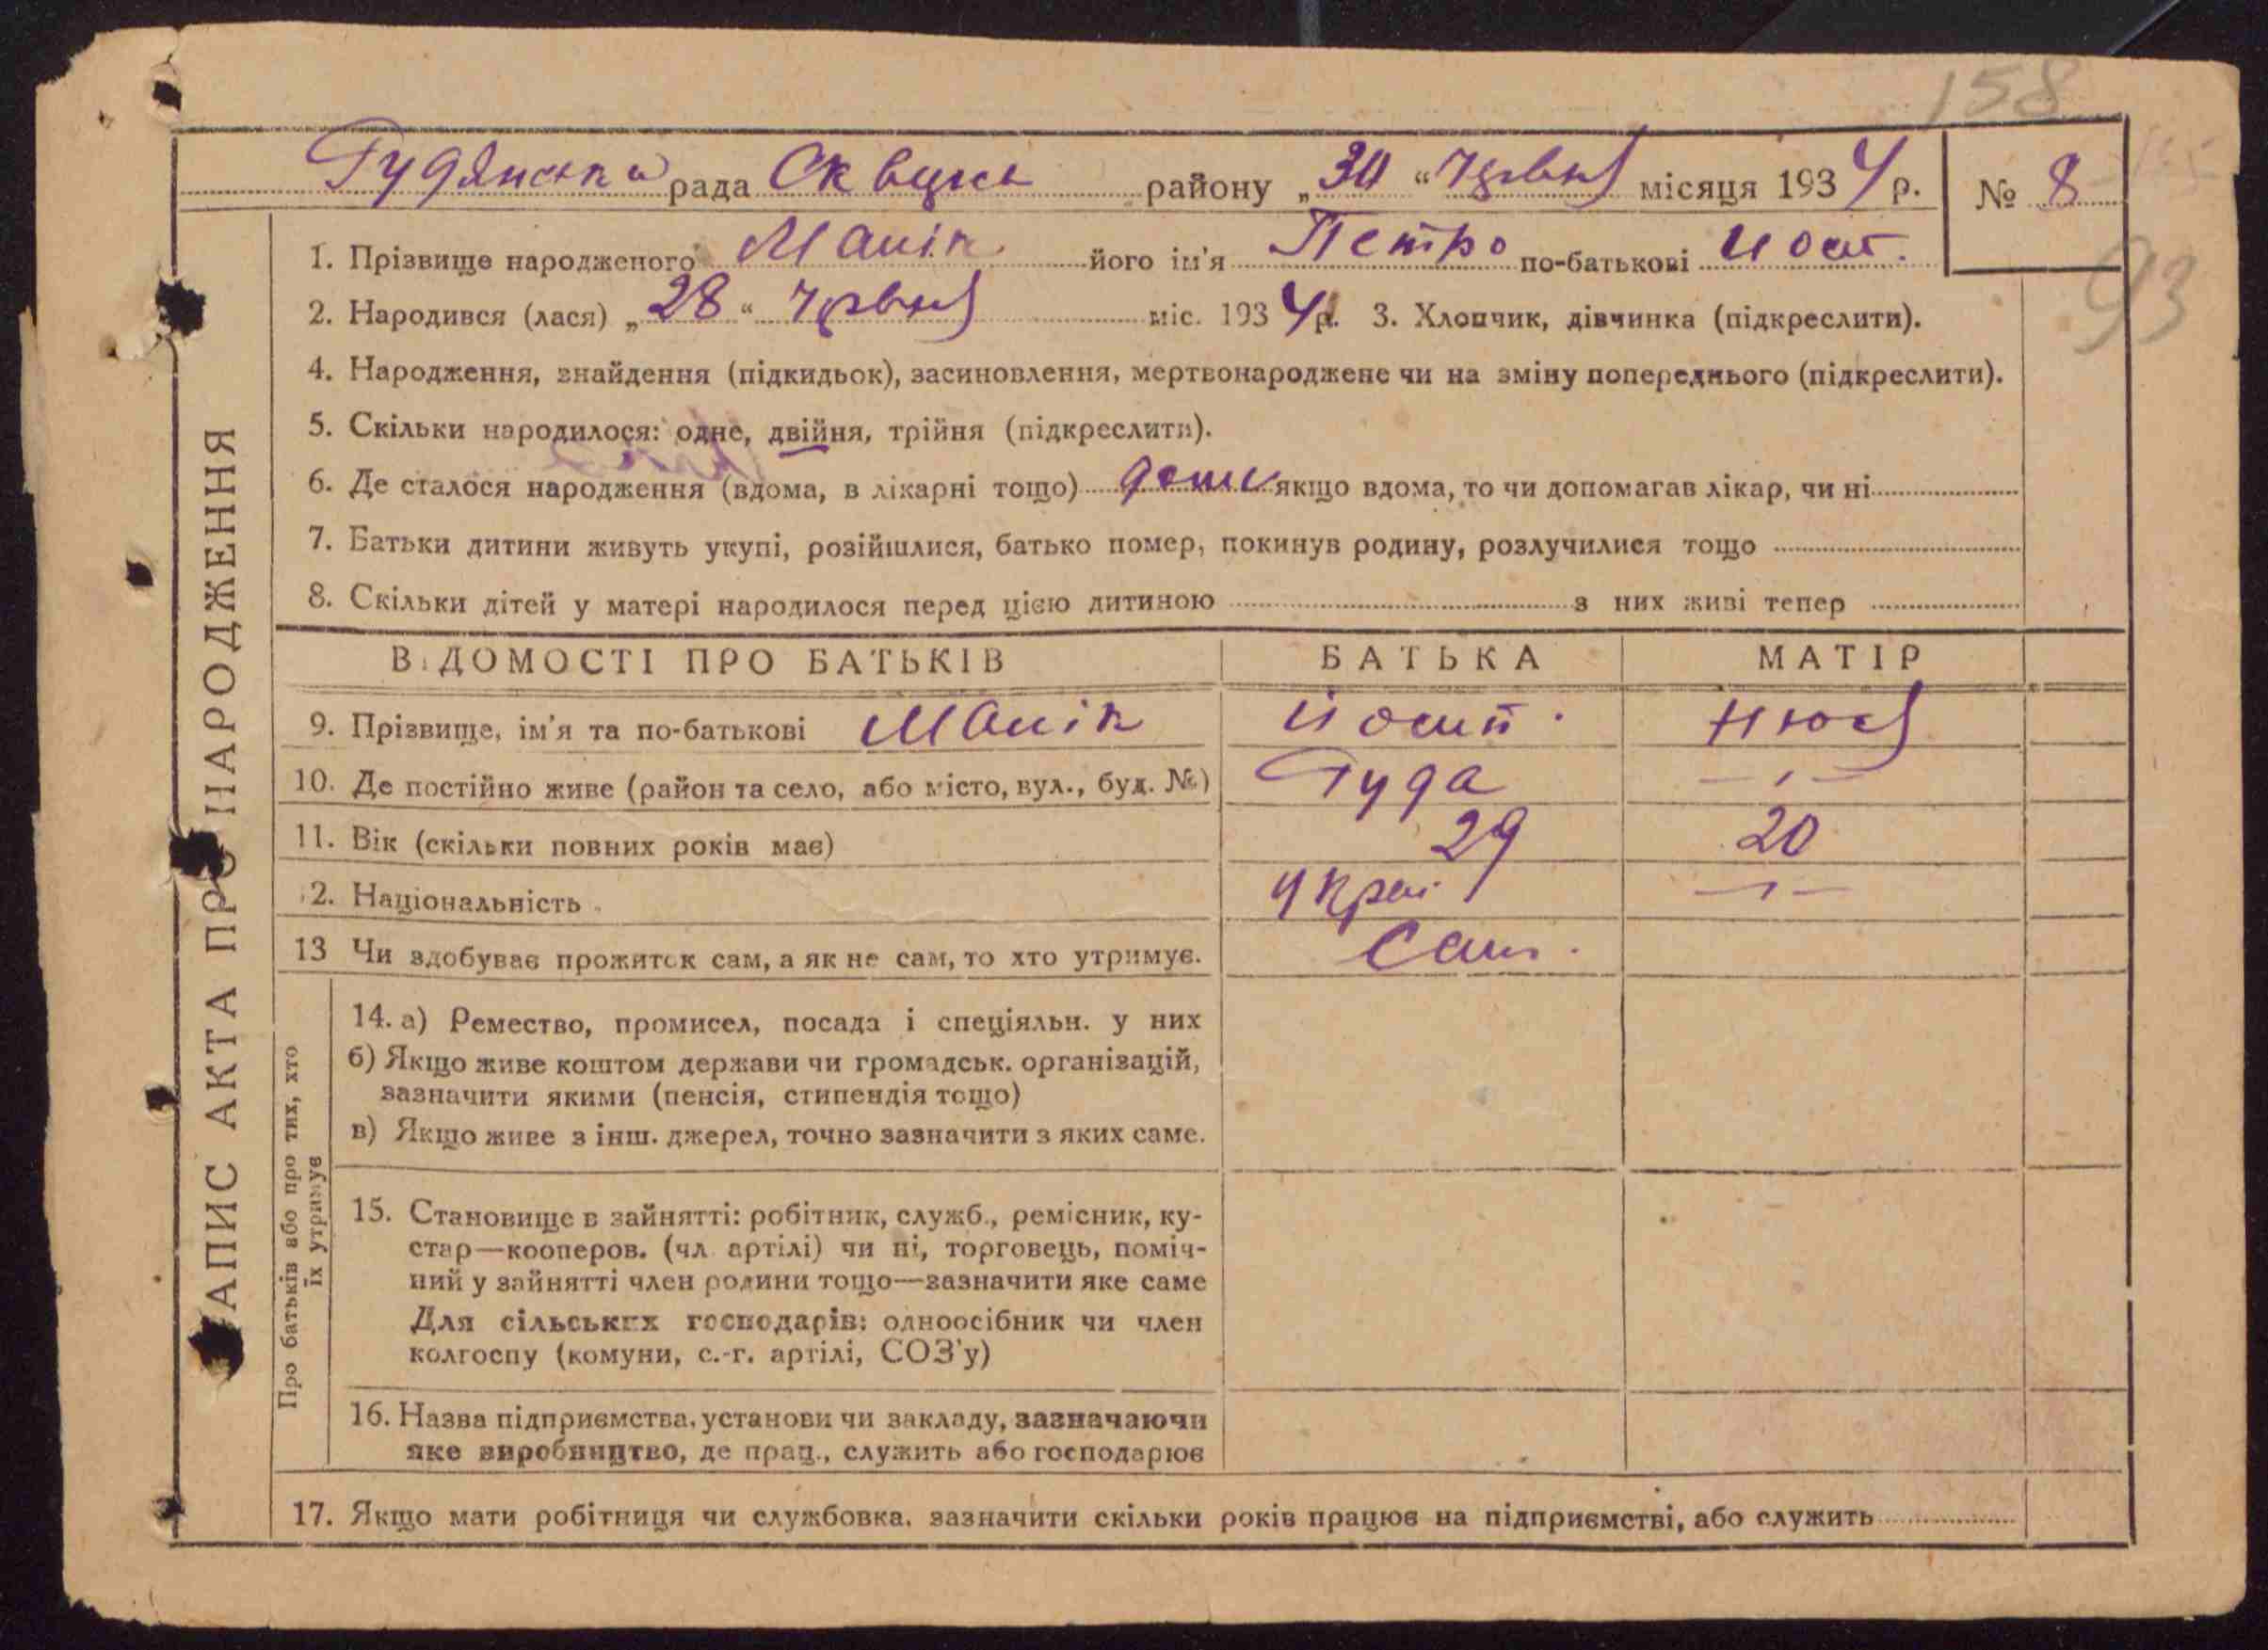 158
Рудянська рада Сквирськ району „30“ червня місяця 1934 р. № 8
1. Прізвище народженого Манік його ім'я Петро по-батькові Йосип.
93
2. Народився (лася) „28“ червня міс. 1934 р. 3. Хлопчик, дівчинка (підкреслити).
4. Народження, знайдення (підкидьок), засиновлення, мертвонароджене чи на зміну попереднього (підкреслити).
5. Скільки народилося: одне, двійня, трійня (підкреслити).
6. Де сталося народження (вдома, в лікарні тощо) дома якщо вдома, то чи допомагав лікар, чи ні
7. Батьки дитини живуть укупі, розійшлися, батько помер, покинув родину, розлучилися тощо
8. Скільки дітей у матері народилося перед цією дитиною з них живі тепер
ВІДОМОСТІ ПРО БАТЬКІВ БАТЬКА МАТІР
9. Прізвище, ім'я та по-батькові Манік Йосип. Нюся
10. Де постійно живе (район та село, або місто, вул., буд. №) Руда — ı —
11. Вік (скільки повних років має) 29 20
12. Національність Украї — ı —
13 Чи здобуває прожиток сам, а як не сам, то хто утримує. Сам.
14. а) Ремество, промисел, посада і спеціяльн. у них
б) Якщо живе коштом держави чи громадськ. організацій,
зазначити якими (пенсія, стипендія тощо)
в) Якщо живе з інш. джерел, точно зазначити з яких саме.
15. Становище в зайнятті: робітник, служб., ремісник, ку-
стар—кооперов. (чл артілі) чи ні, торговець, поміч-
ний у зайнятті член родини тощо—зазначити яке саме
Для сільських господарів: одноосібник чи член
колгоспу (комуни, с.-г. артілі, СОЗ'у)
16. Назва підприємства, установи чи закладу, зазначаючи
яке виробництво, де прац., служить або господарює
17. Якщо мати робітниця чи службовка, зазначити скільки років працює на підприємстві, або служить
ЗАПИС АКТА ПРО НАРОДЖЕННЯ
Про батьків або про тих, хто
їх утримує